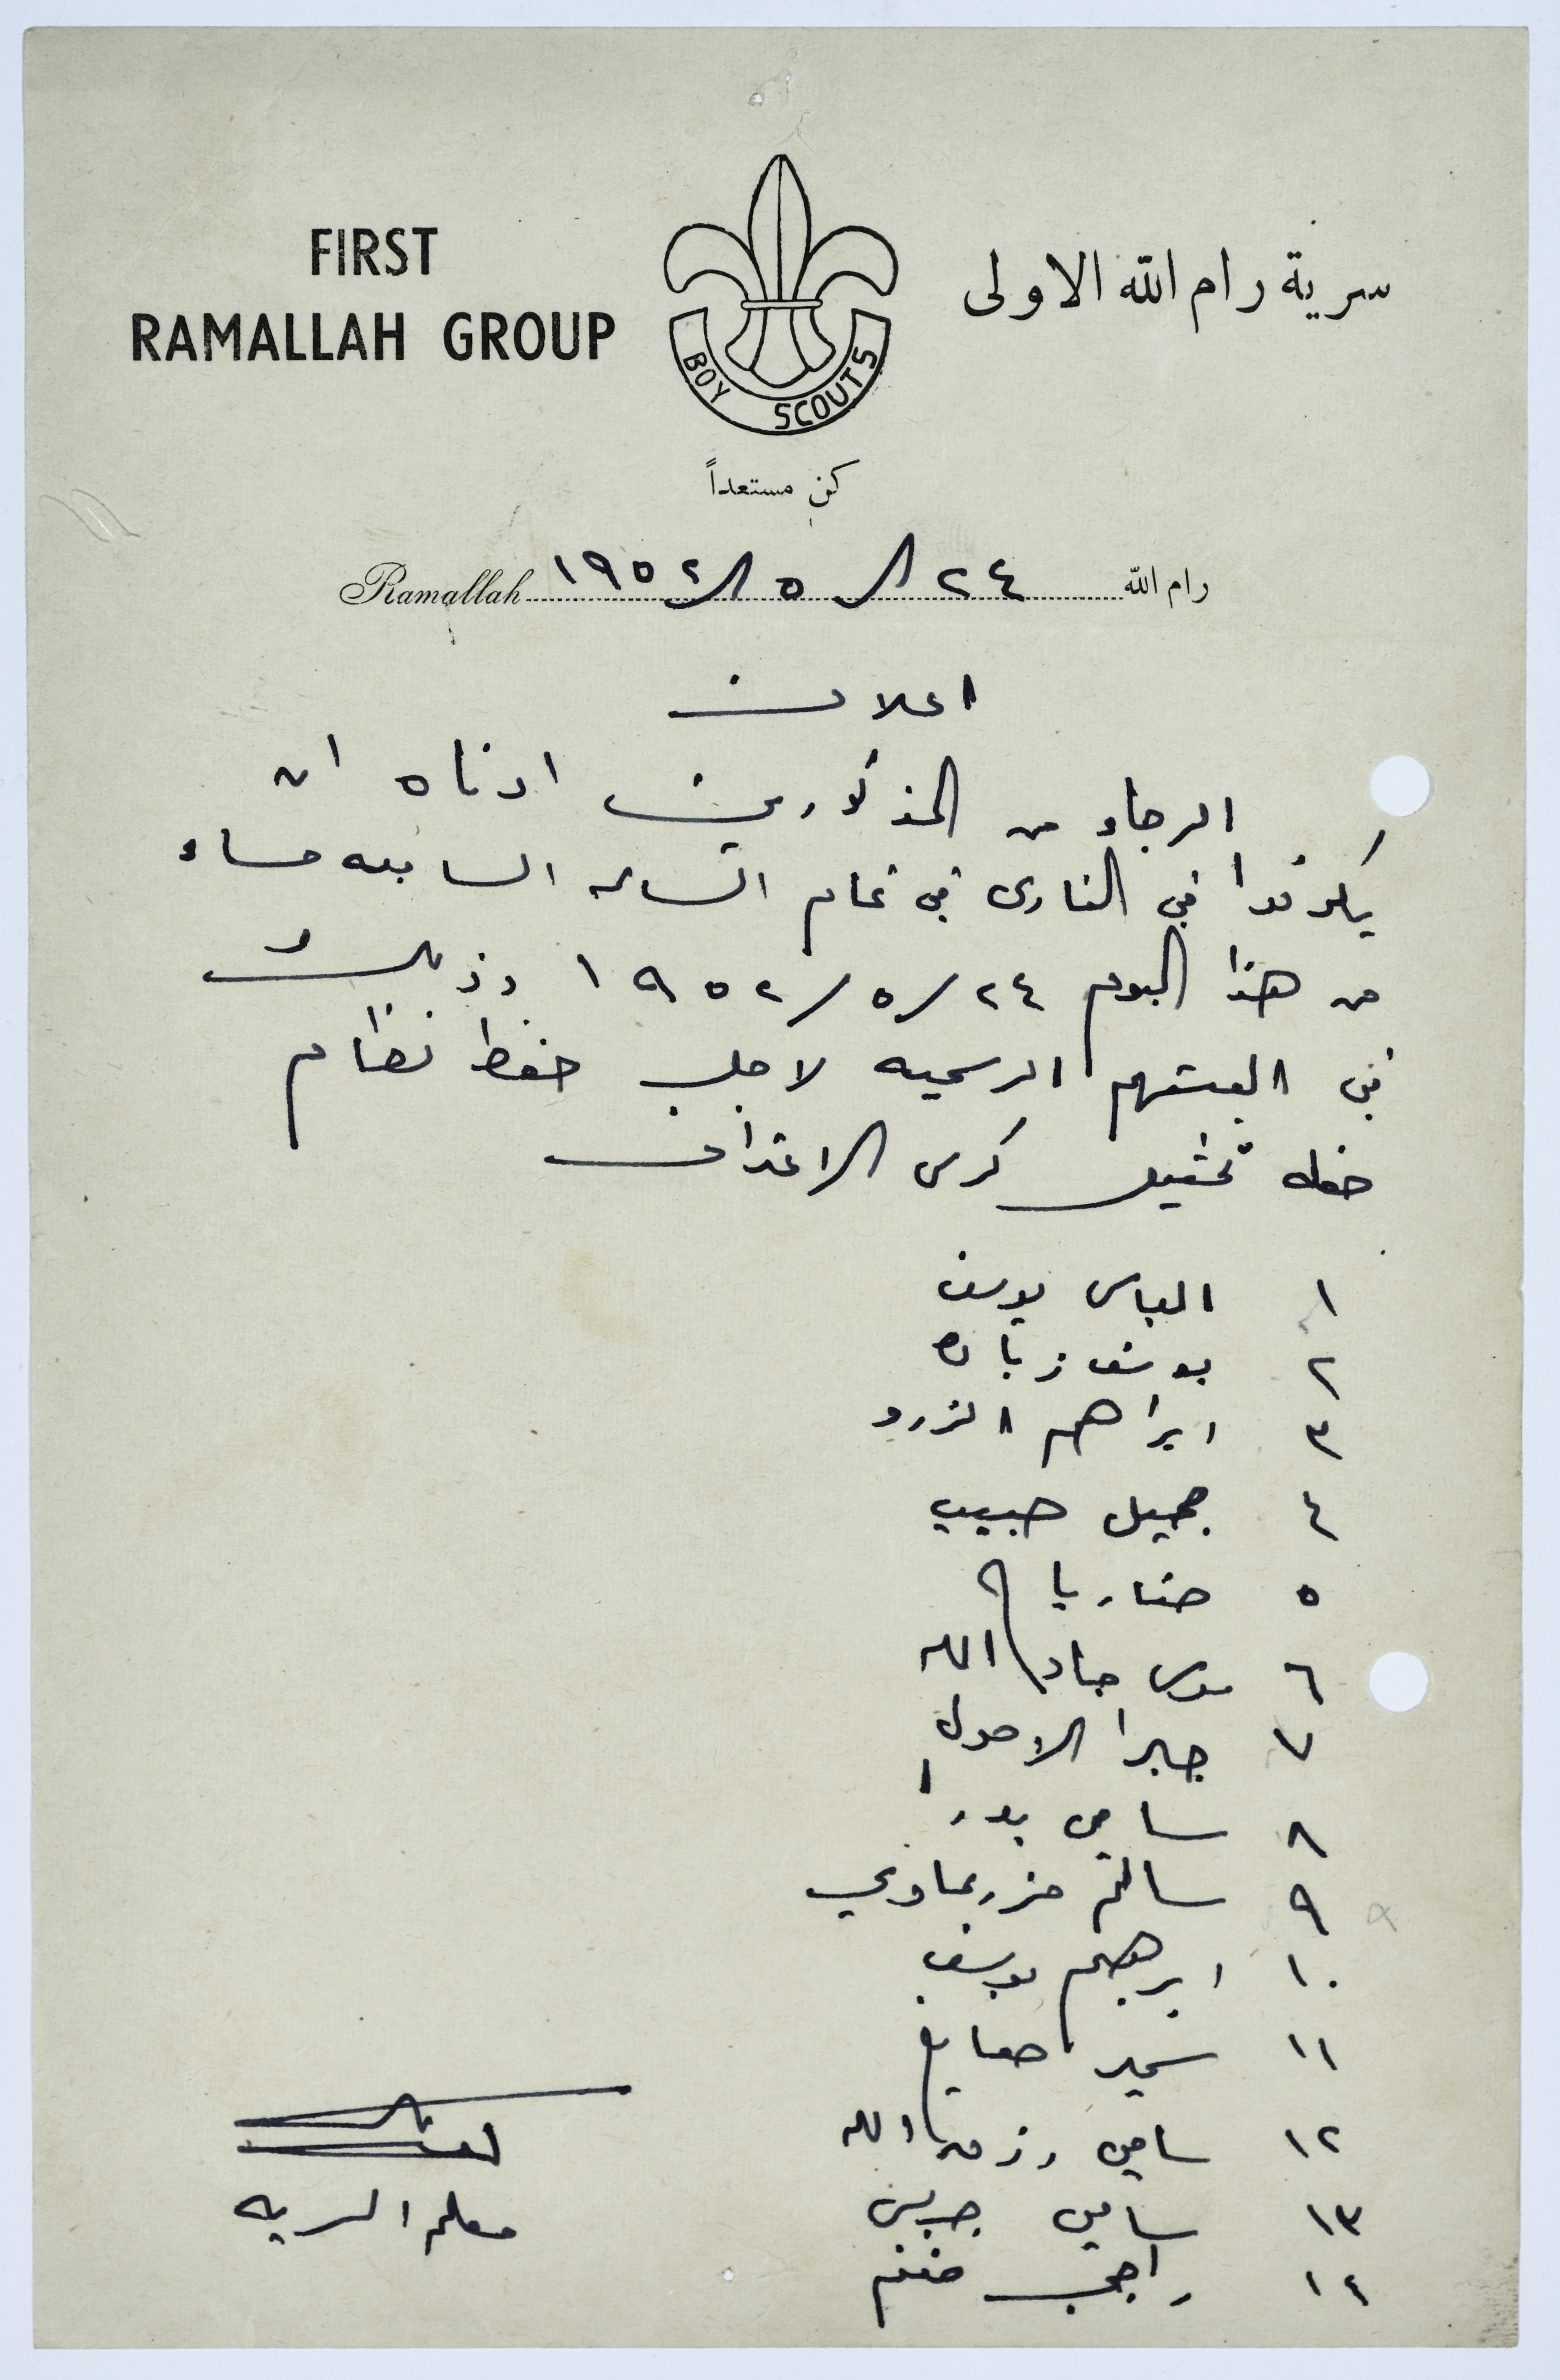 FIRST
RAMALLAH GROUP
BOY SCOUTS
سرية رام الله الاولى
كن مستعداً
رام الله ٢٤/٥/١٩٥٢ Ramallah
اعلان
الرجاء من المذكورين ادناه ان
يكونوا في النادي في تمام الساعه السابعه مساء
من هذا اليوم ٢٤/٥/١٩٥٢ وذلك
في البستهم الرسميه لاجل حفظ نظام
حفله تمثيل كرسي الاعتراف
١ الياس يوسف
٢ يوسف زياده
٣ ابراهيم الزرو
٤ جميل حبيب
٥ حنا رباح
٦ موسى جاد الله
٧ جبرا الاحول
٨ سامي بدر
٩ سالم مزرعاوي
١٠ ابرهيم يوسف
١١ سمير صايغ
١٢ سامي رزق الله
١٣ سامي جريس
١٤ راجي غنيم
معلم السريه